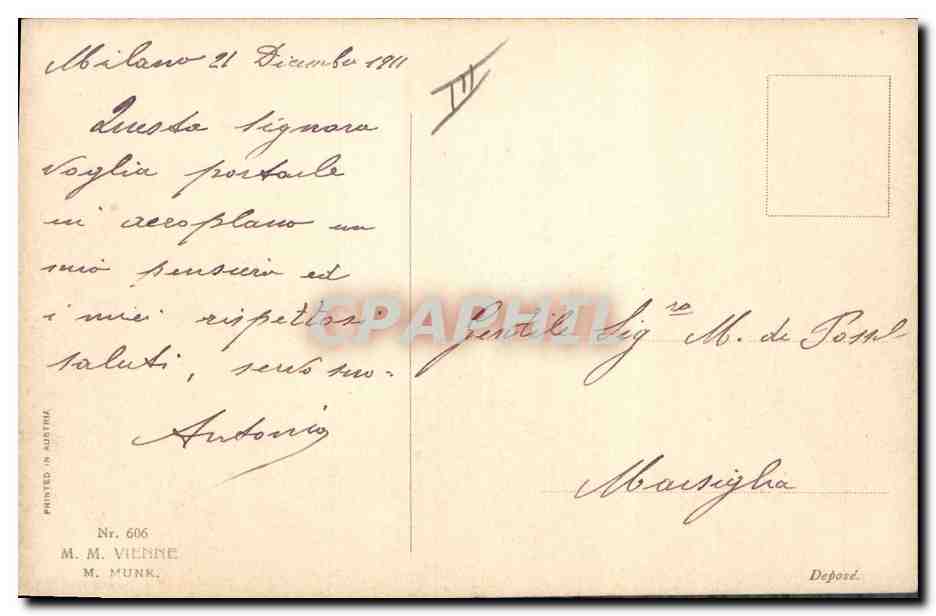 Milano 21 Dicembre 1911
III
Questa signora
voglia portarle
in aeroplano un
mio pensiero ed
i miei rispettosi
saluti, servo suo =
Antonio
Gentile Sig ra M. de
Marsiglia
PRINTED IN AUSTRIA
Nr. 606
M. M. VIENNE
M. MUNK.
Deposé.
CPAPHIL